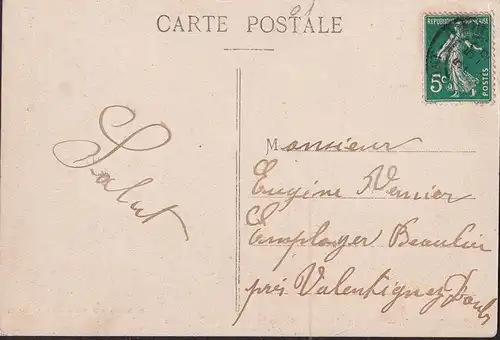 CARTE POSTALE
RÉPUBLIQUE FRANÇAISE
5c
POSTES
Salut
Monsieur
Eugène Vernier
Employer Beaulieu
près Valentigney Doubs